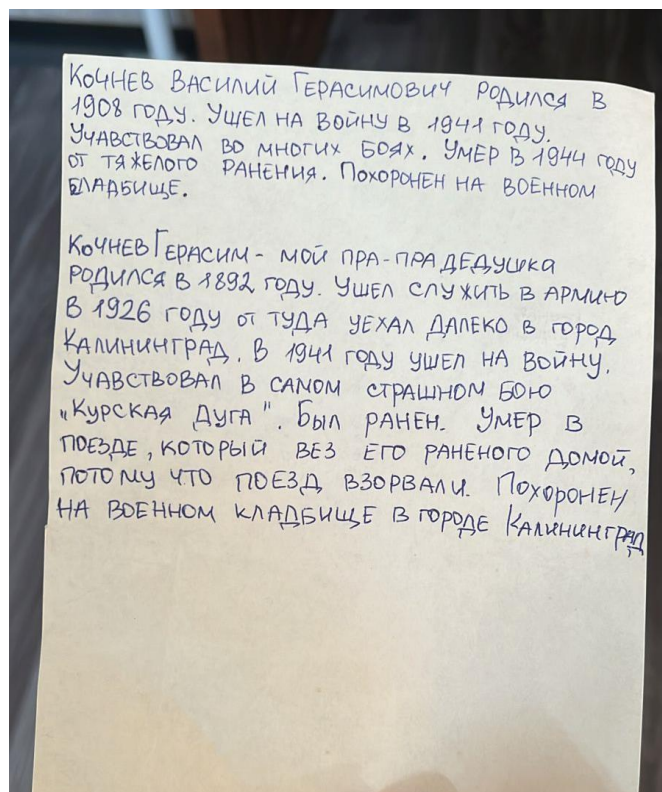 Кочнев Василий Герасимович родился в
1908 году. Ушел на войну в 1941 году.
Учавствовал во многих боях. Умер в 1944 году
от тяжелого ранения. Похоронен на военном
кладбище.
Кочнев Герасим - мой пра-прадедушка
родился в 1892 году. Ушел служить в армию
в 1926 году от туда уехал далеко в город
Калининград. В 1941 году ушел на войну.
Учавствовал в самом страшном бою
„Курская Дуга". Был ранен. Умер в
поезде, который вез его раненого домой,
потому что поезд взорвали. Похоронен
на военном кладбище в городе Калининград